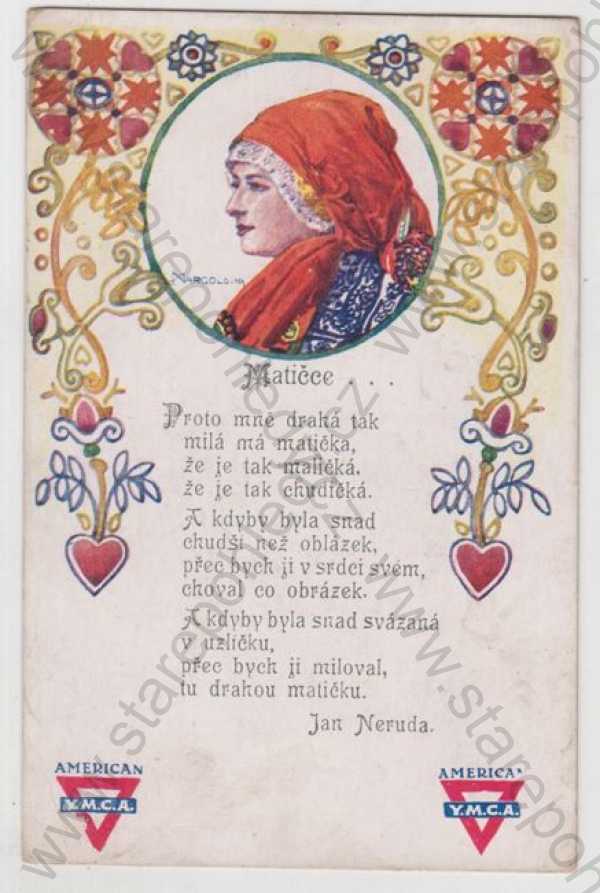 NARGOLD.NA
Matičce . . .
Proto mně drahá tak
milá má matička,
že je tak maličká.
že je tak chudičká.
A kdyby byla snad
chudší než oblázek,
přec bych ji v srdci svém,
choval co obrázek.
A kdyby byla snad svázaná
v uzlíčku,
přec bych ji miloval,
tu drahou matičku.
Jan Neruda.
AMERICAN
Y.M.C.A.
AMERICAN
Y.M.C.A.
www.starepohlednice.cz